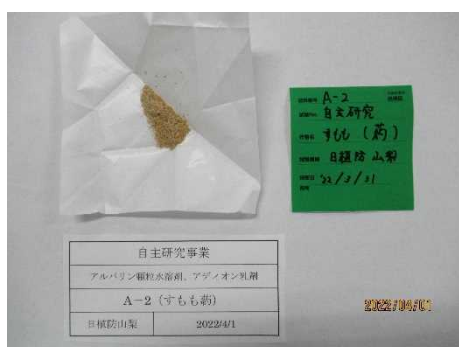 A-2
自主研究
すもも (葯)
日植防 山梨
'22/3/31
自主研究事業
アルバリン顆粒水溶剤、アディオン乳剤
A-2 (すもも葯)
日植防山梨 2022/4/1
2022/04/01